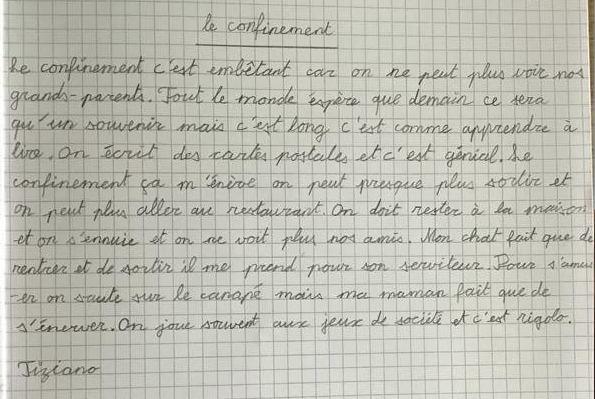 le confinement
Le confinement c'est embêtant car on ne peut plus voir nos
grands-parents. Tout le monde éspère que demain ce sera
qu'un souvenir mais c'est long c'est comme apprendre à
lire. On écrit des cartes postales et c'est génial. Le
confinement ça m'énève on peut presque plus sortir et
on peut plus aller au restaurant. On doit rester à la maison
et on s'ennuie et on ne voit plus nos amis. Mon chat fait que de
rentrer et de sortir il me prend pour son serviteur. Pour s'amus
-er on saute sur le canapé mais ma maman fait que de
s'énerver. On joue souvent aux jeux de société et c'est rigolo.
Tiziano